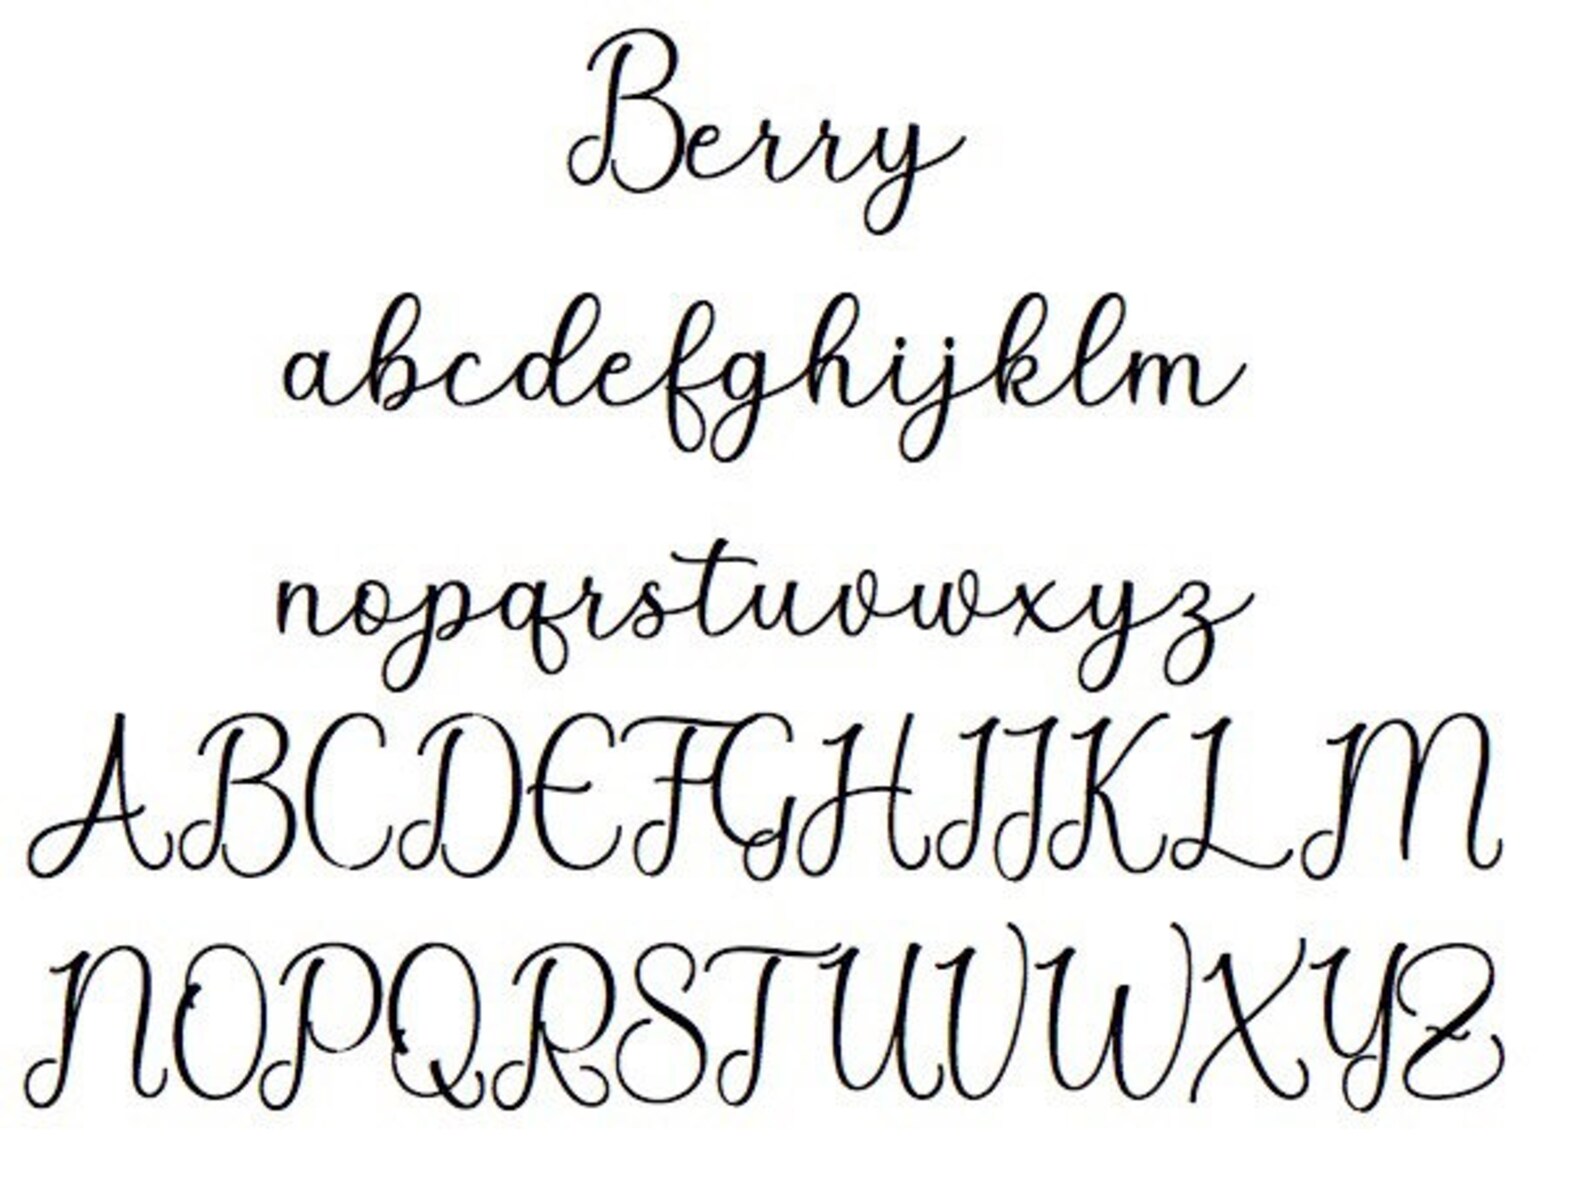 Berry
abcdefghijklm
nopqrstuvwxyz
ABCDEFGHIJKLM
NOPQRSTUVWXYZ